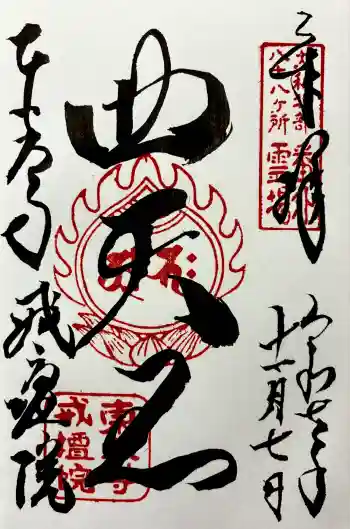 奉拝
大和北部
八十八ヶ所 霊場
令和七年
十一月七日
四天王
東大寺 戒壇院
東大寺
戒壇院